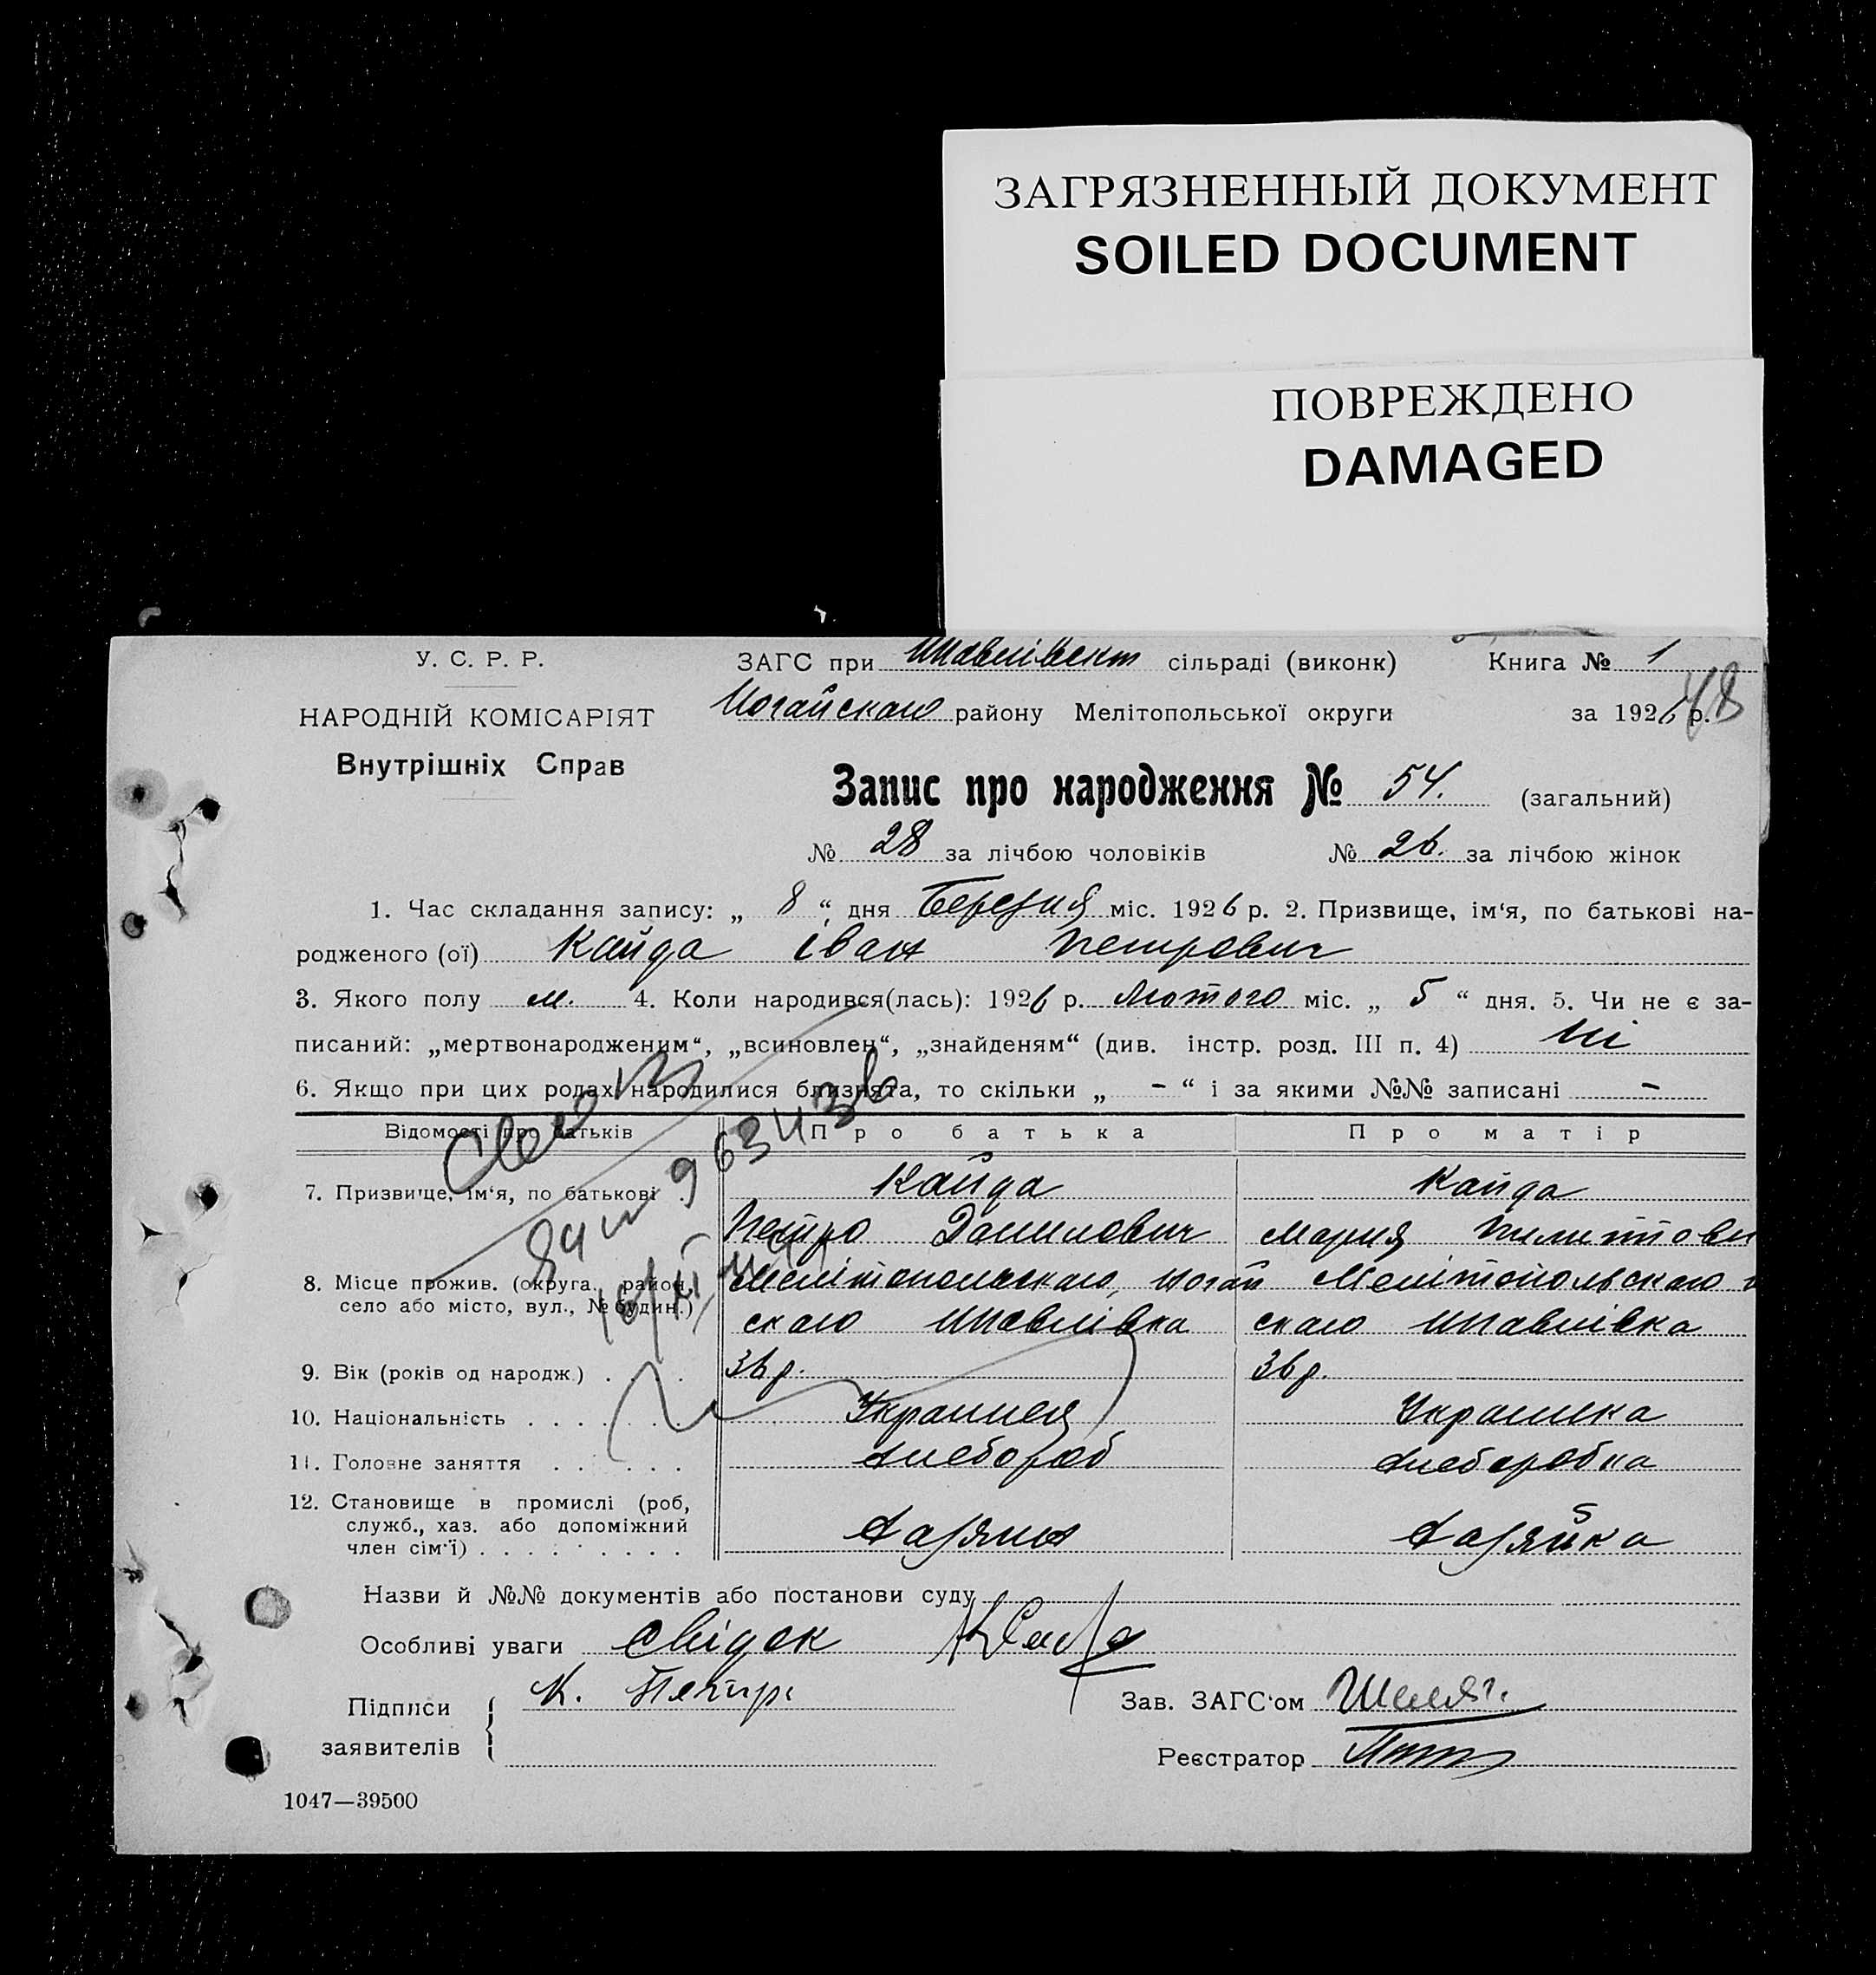 ЗАГРЯЗНЕННЫЙ ДОКУМЕНТ
SOILED DOCUMENT
ПОВРЕЖДЕНО
DAMAGED
У. С. Р. Р.
НАРОДНІЙ КОМІСАРІЯТ
Внутрішніх Справ
ЗАГС при сільраді (виконк) Книга № 1
Ногайскаго району Мелітопольської округи за 1926 р. 48
Запис про народження № 54. (загальний)
№ 28 за лічбою чоловіків № 26. за лічбою жінок
1. Час складання запису: „ 8 “ дня Березня міс. 1926 р. 2. Призвище, ім‘я, по батькові на-
родженого (ої) Кайда іван петрович
3. Якого полу м. 4. Коли народився(лась): 1926 р. Лютого міс. „ 5 “ дня. 5. Чи не є за-
писаний: „мертвонародженим“, „всиновлен“, „знайденям“ (див. інстр. розд. III п. 4) Ні
6. Якщо при цих родах народилися близнята, то скільки „ - “ і за якими №№ записані -
Відомості про батьків Про батька Про матір
7. Призвище, ім‘я, по батькові Кайда Кайда
Петро Данилович Мария
8. Місце прожив. (округа, район, Мелітопольскаго, Ногай Мелітопольскаго
село або місто, вул., № будин.) скаго скаго
9. Вік (років од народж.) 36 р. 36 р.
10. Національність Украинец Украинка
11. Головне заняття Хлебороб Хлеборобка
12. Становище в промислі (роб,
служб., хаз. або допоміжний Хазяин Хазяйка
член сім‘ї)
Назви й №№ документів або постанови суду
Особливі уваги Свідок
Підписи К. Петро Зав. ЗАГС‘ом
заявителів Реєстратор
1047—39500